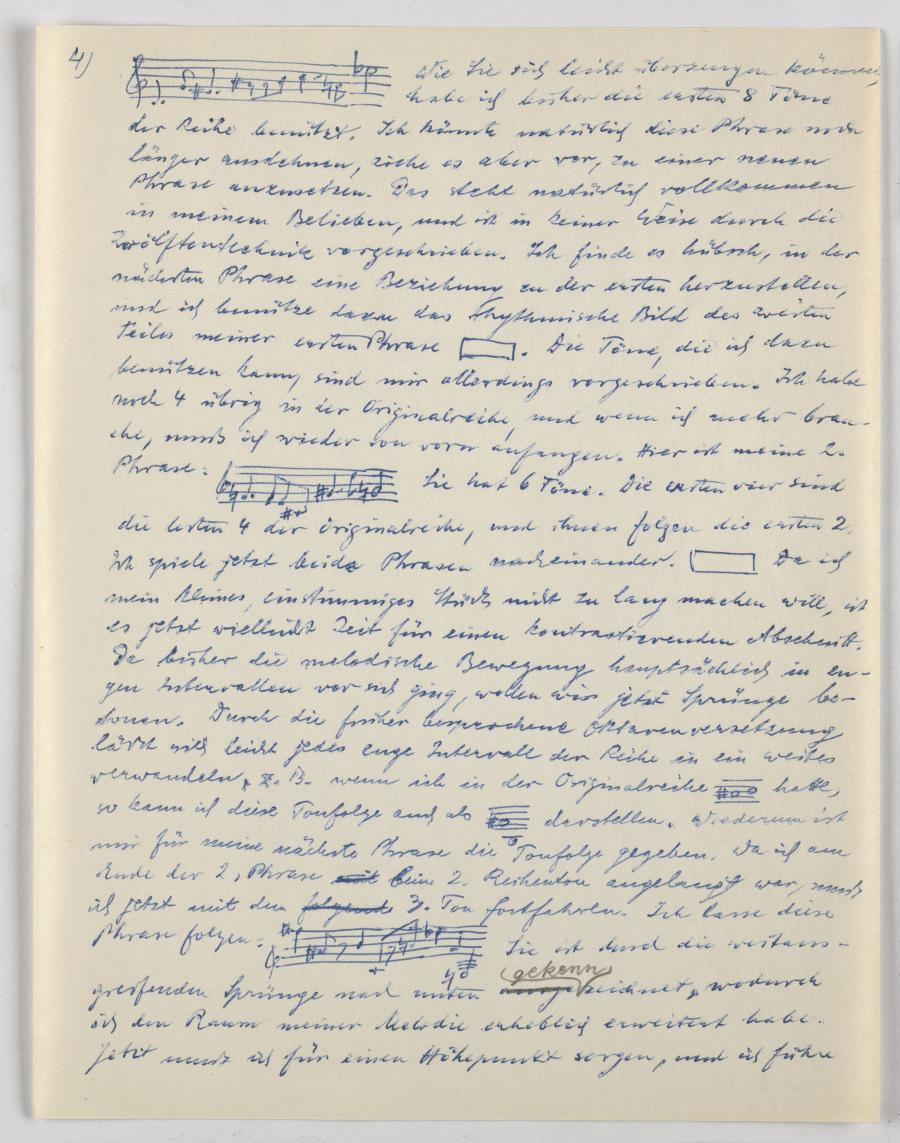 4)
Wie Sie sich leicht überzeugen können,
habe ich bisher die ersten 8 Töne
der Reihe benützt. Ich könnte natürlich diese Phrase noch
länger ausdehnen, ziehe es aber vor, zu einer neuen
Phrase anzusetzen. Das steht natürlich vollkommen
in meinem Belieben, und ist in keiner Weise durch die
Zwölftontechnik vorgeschrieben. Ich finde es hübsch, in der
nächsten Phrase eine Beziehung zu der ersten herzustellen,
und ich benütze dazu das rhythmische Bild des zweiten
Teiles meiner ersten Phrase . Die Töne, die ich dazu
benützen kann, sind mir allerdings vorgeschrieben. Ich habe
noch 4 übrig in der Originalreihe, und wenn ich mehr brau-
che, muss ich wieder von vorn anfangen. Hier ist meine 2.
Phrase: Sie hat 6 Töne. Die ersten vier sind
die letzten 4 der Originalreihe, und ihnen folgen die ersten 2.
Ich spiele jetzt beide Phrasen nacheinander. Da ich
mein kleines, einstimmiges Stück nicht zu lang machen will, ist
es jetzt vielleicht Zeit für einen kontrastierenden Abschnitt.
Da bisher die melodische Bewegung hauptsächlich in en-
gen Intervallen vor sich ging, wollen wir jetzt Sprünge be-
tonen. Durch die früher besprochene Oktavenversetzung
lässt sich leicht jedes enge Intervall der Reihe in ein weites
verwandeln, z. B. wenn ich in der Originalreihe hatte,
so kann ich diese Tonfolge auch als darstellen. Wiederum ist
mir für meine nächste Phrase die Tonfolge gegeben. Da ich am
Ende der 2. Phrase mit beim 2. Reihenton angelangt war, muss
ich jetzt mit dem folgende 3. Ton fortfahren. Ich lasse diese
Phrase folgen: Sie ist durch die weitaus-
greifenden Sprünge nach unten gekennzeichnet, wodurch
ich den Raum meiner Melodie erheblich erweitert habe.
Jetzt muss ich für einen Höhepunkt sorgen, und ich führe